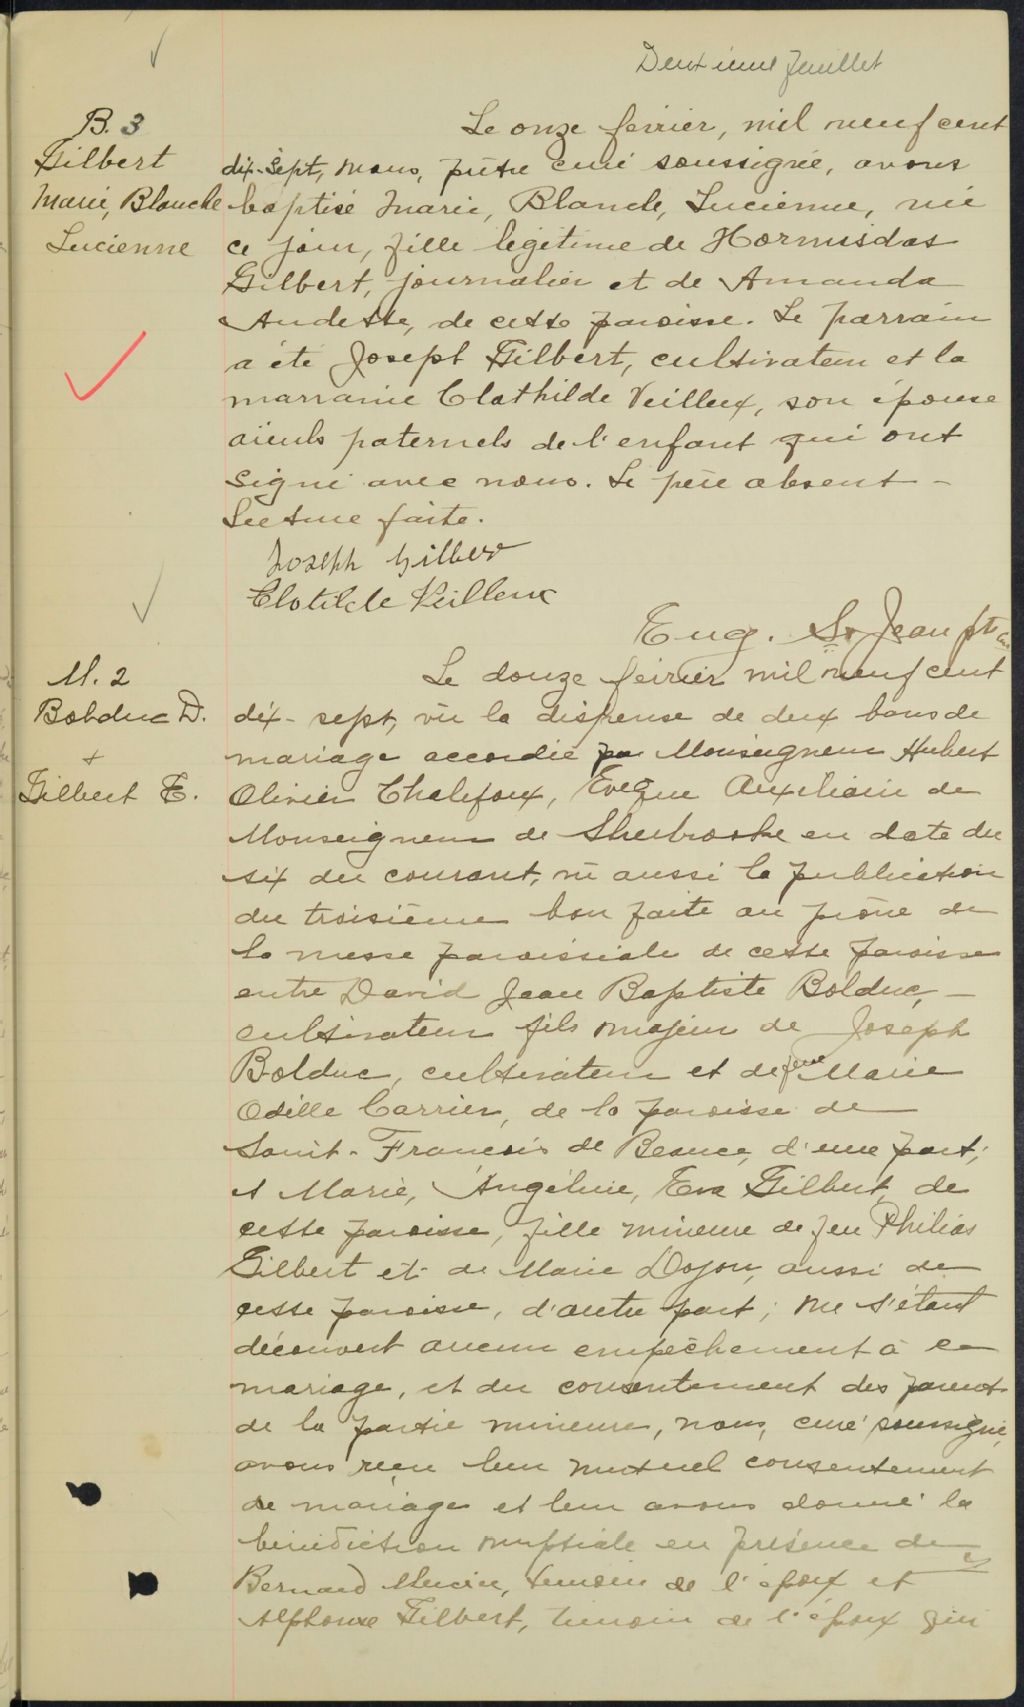 Deuxième feuillet
B. 3
Gilbert
Marie, Blanche
Lucienne
Le onze février, mil neuf cent
dix-sept, nous, prêtre curé soussignée, avons
baptisé Marie, Blanche, Lucienne, née
ce jour, fille légitime de Hormisdas
Gilbert, journalier et de Amanda
Audette, de cette paroisse. Le parrain
a été Joseph Gilbert, cultivateur et la
marraine Clathilde Veilleux, son épouse
aïeuls paternels de l'enfant qui ont
signé avec nous. Le père absent -
Lecture faite.
Joseph Gilber
Clotilde Veilleux
Eug. St Jean ptre
M. 2
Bolduc D.
+
Gilbert E.
Le douze février mil neuf cent
dix-sept, vu la dispense de deux bans de
mariage accordée par Monseigneur Hubert
Olivier Chalifoux, Evêque Auxiliaire de
Monseigneur de Sherbrooke en date du
six du courant, vu aussi la publication
du troisième ban faite au prône de
la messe paroissiale de cette paroisse
entre David Jean Baptiste Bolduc, -
cultivateur fils majeur de Joseph
Bolduc, cultivateur et de feue Marie
Odille Carrier, de la paroisse de
Saint-François de Beauce, d'une part;
et Marie, Angéline, Eva Gilbert, de
cette paroisse, fille mineure de feu Philias
Gilbert et de Marie Doyon, aussi de
cette paroisse, d'autre part; ne s'étant
découvert aucun empêchement à ce
mariage, et du consentement des parents
de la partie mineure, nous, curé soussigné,
avons reçu leur mutuel consentement
de mariage et leur avons donné la
bénédiction nuptiale en présence de
Bernard, témoin de l'époux et
Alphonse Gilbert, témoin de l'époux qui